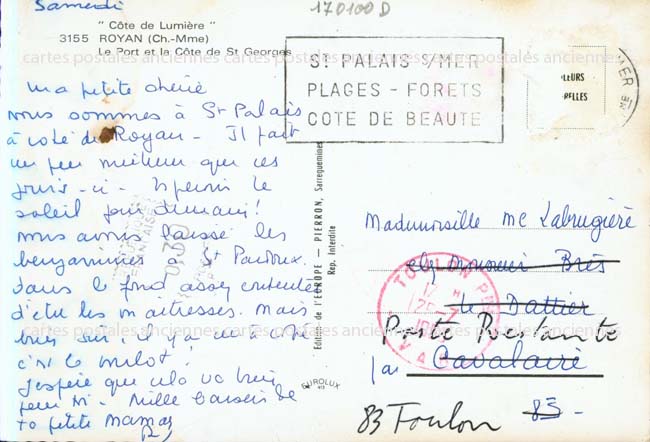 Samedi
170100 D
" Côte de Lumière "
3155 ROYAN (Ch.-Mme)
Le Port et la Côte de St Georges
cartes postales anciennes cartes postales anciennes cartes postales anciennes cartes postales anciennes
ST PALAIS S/MER
PLAGES - FORETS
COTE DE BEAUTE
MER
ma petite chérie
nous sommes à St Palais
à coté de Royan - Il fait
un peu meilleur que ces
jours-ci - Espérons le
soleil pour demain!
nous avons laissé les
benjamines à St
dans le fond assez contentes
d'etre les maitresses. Mais
bien sur, il y a un à coté
c'est le
J'espère que cela va bien
pour toi - Mille baisers de
ta petite maman
Edition de l'EUROPE - PIERRON, Sarreguemines
Rep. Interdite
EUROLUX
Mademoiselle
Brès
Le Dattier
Poste Restante
par Cavalaire
83 -
83 Toulon
TOULON
25 - 7
VAR